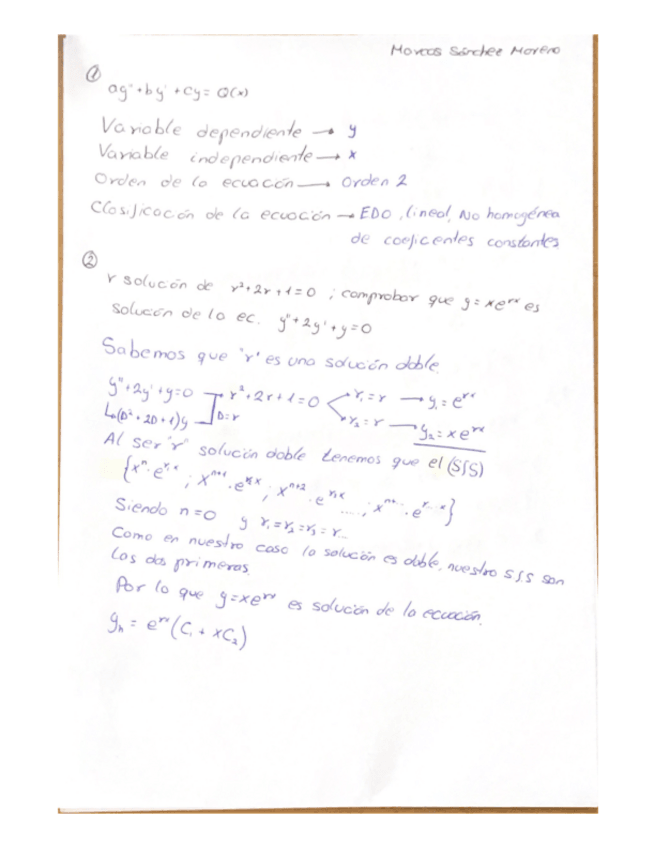 Marcos Sánchez Moreno
①
ay'' + by' + cy = Q(x)
Variable dependiente → y
Variable independiente → x
Orden de la ecuación → Orden 2
Clasificación de la ecuación → EDO, lineal, No homogénea
de coeficentes constantes
②
r solución de r²+2r+1=0 ; comprobar que y = xe^(rx) es
solución de la ec. y''+2y'+y=0
Sabemos que 'r' es una solución doble.
y''+2y'+y=0 → r²+2r+1=0 < r₁=r → y₁=e^(rx)
↳(D²+2D+1)y D=r r₂=r → y₂=xe^(rx)
Al ser "r" solución doble tenemos que el (SfS)
{xⁿ·e^(r₁x) ; xⁿ⁺¹·e^(r₂x) ; xⁿ⁺²·e^(r₃x) ....; xⁿ⁺··.e^(r...x)}
Siendo n=0 y r₁=r₂=r₃=r...
Como en nuestro caso la solución es doble, nuestro SfS son
las dos primeras.
Por lo que y=xe^(rx) es solución de la ecuación.
yₕ = e^(rx)(C₁ + xC₂)